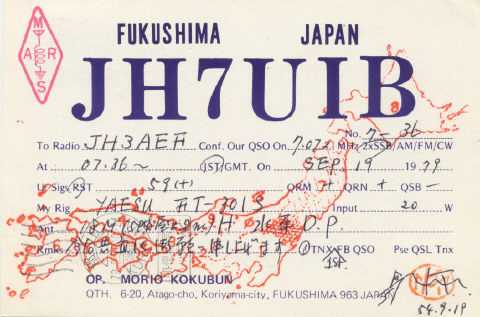 M
A R
S
FUKUSHIMA JAPAN
JH7UIB
8
No. 7-36
To Radio JH3AEF Conf. Our QSO On 7.072 MHz 2xSSB/AM/FM/CW
At 07.36~ JST/GMT. On SEP 19 1979
Ur Sig. RST 59(+) QRM + QRN + QSB -
My Rig YAESU Input 20 W
Ant H D.P.
Rmks ます TNX FB QSO Pse QSL Tnx
1ST
OP. MORIO KOKUBUN
QTH. 6-20, Atago-cho, Koriyama-city, FUKUSHIMA 963 JAPAN
54.9.19